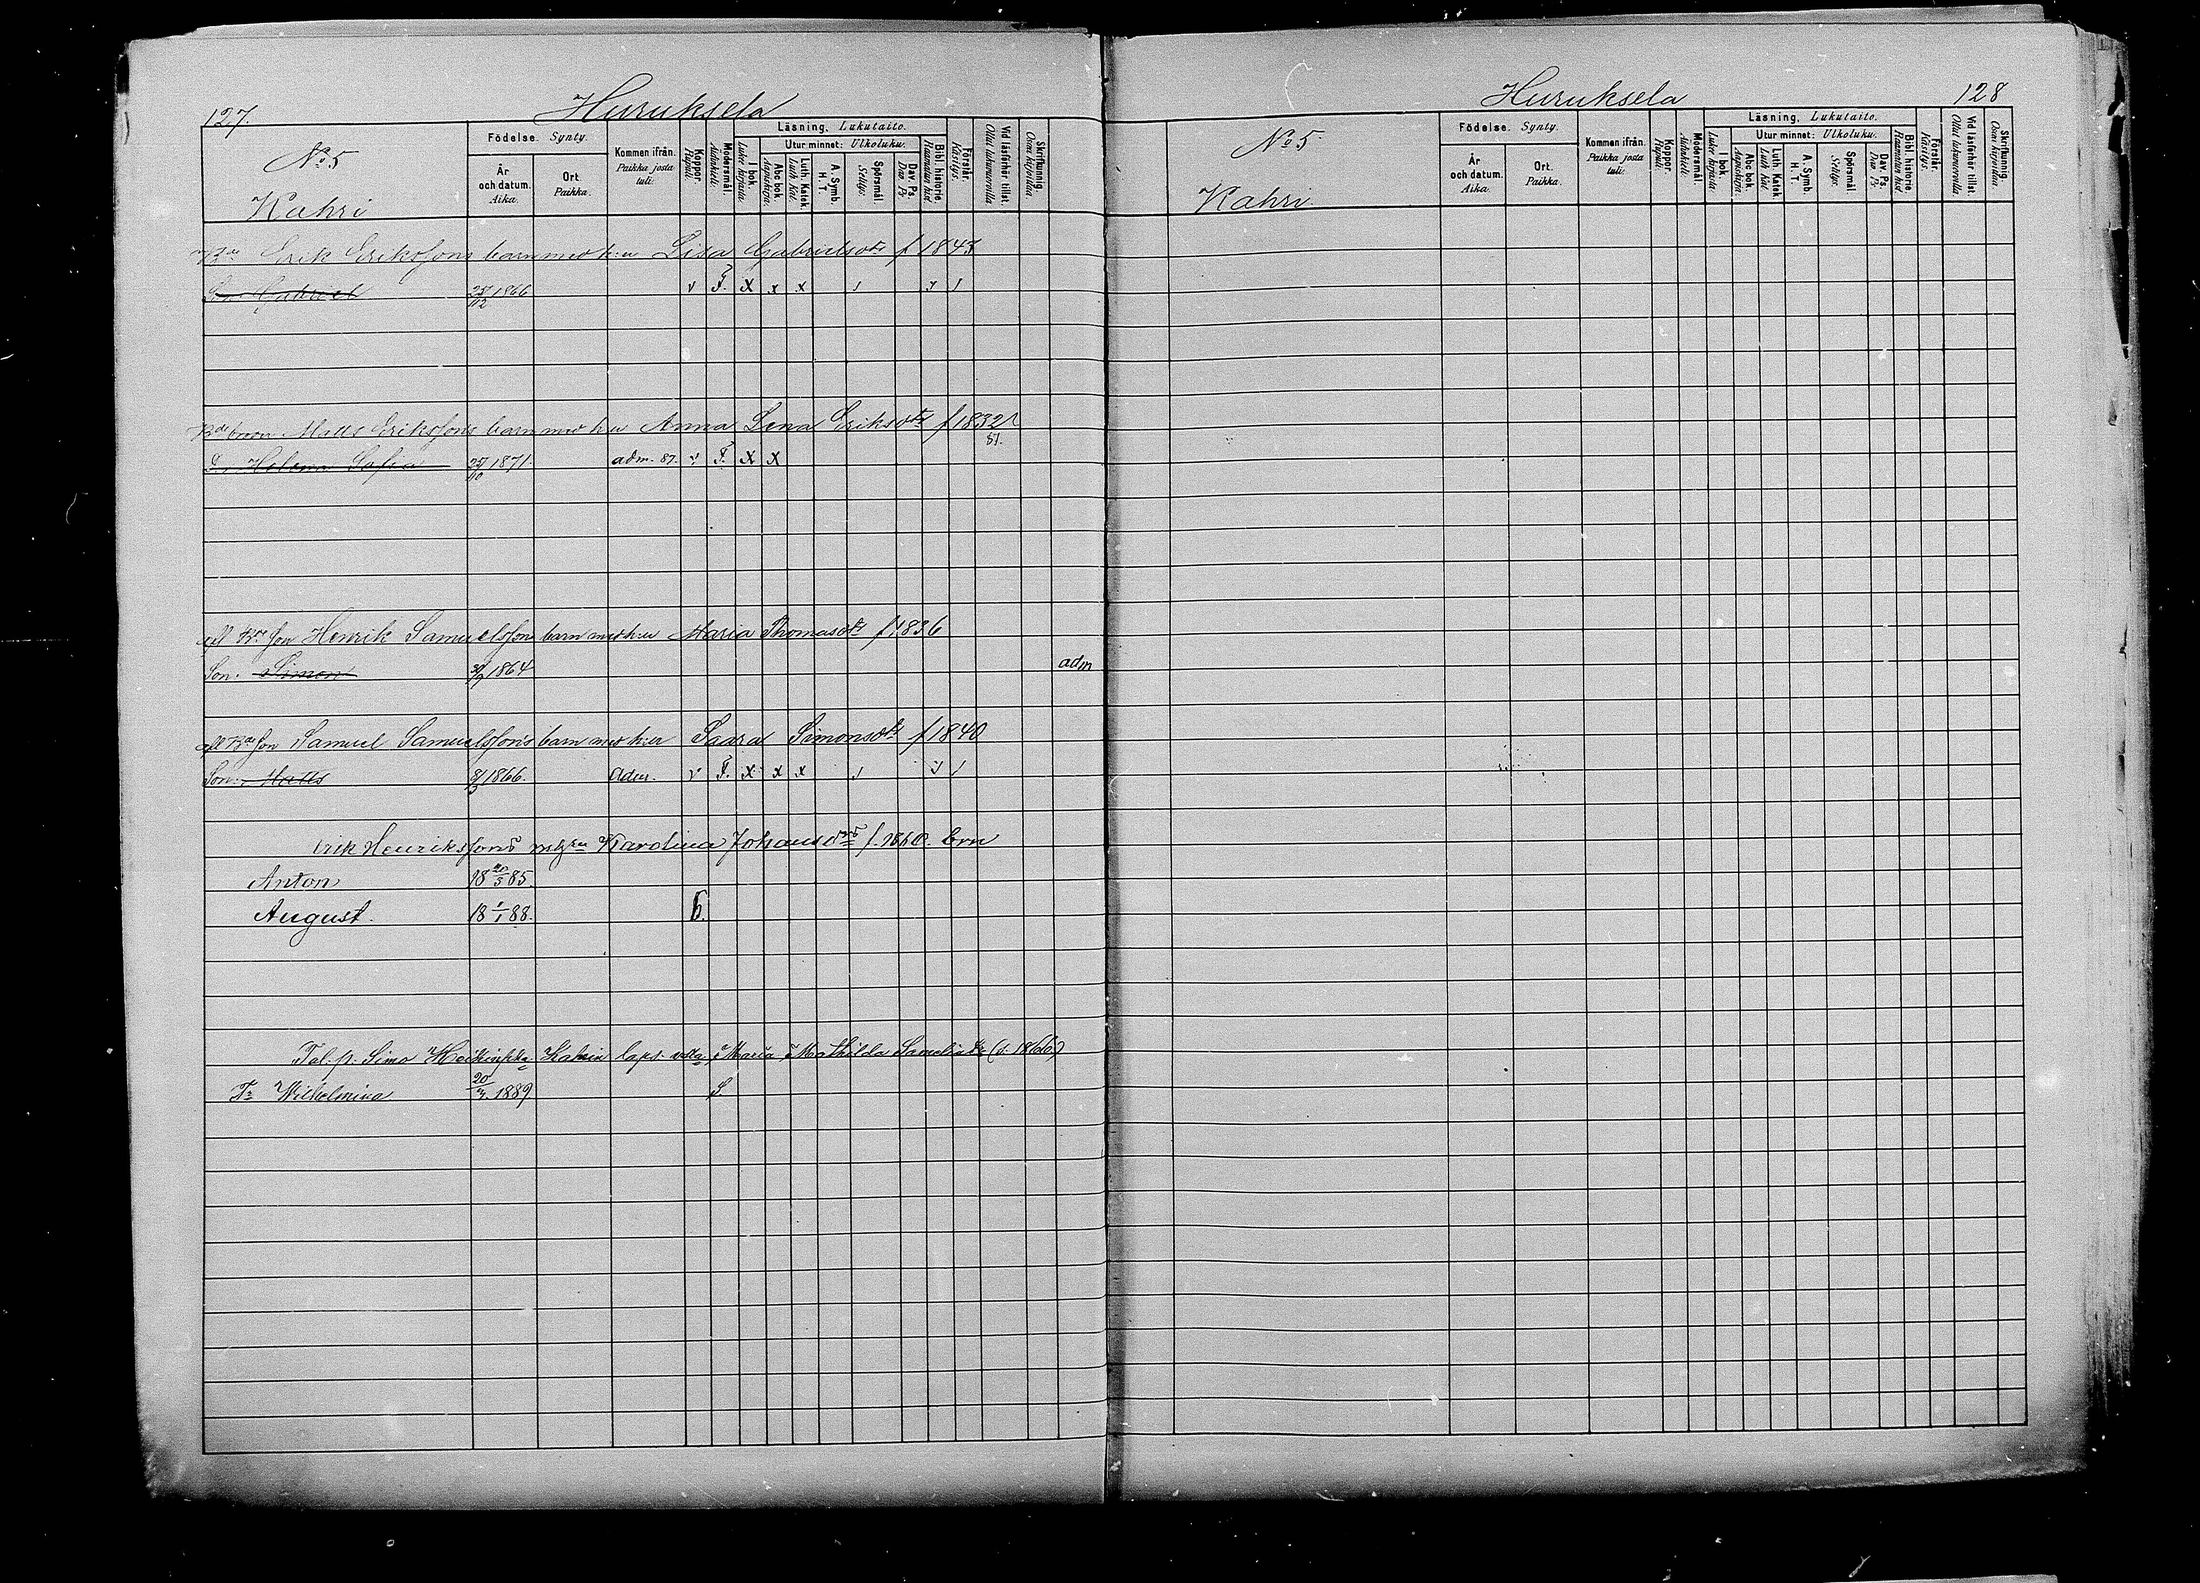 127. Huruksela
No 5
Kahri
Födelse. Synty.
År och datum. Aika.
Ort. Paikka.
Kommen ifrån. Paikka josta tuli.
Koppor. Rupuli.
Modersmål. Äidinkieli.
Läsning. Lukutaito.
I bok. Luku kirjasta.
Utur minnet: Ulkoluku.
Abc bok. Aapiskirja.
Luth. Katek. Luth. Kat.
A. Symb. H. T.
Spörsmål. Selitys.
Dav. Ps. Dav. Ps.
Bibl. historie. Raamatun hist.
Förstår. Käsitys.
Vid läsförhör tillst. Ollut lukuvuorolla
Skrifkunnig. Osaa kirjoittaa.
Erik Eriksons barn med h:u Lisa Gabrielsdr f 1843
Gabriel 25/12 1866 v F. x x x
Matts Eriksons barn med h:u Anna Lena Eriksdr f 1832
D. Helena Sofia 25/10 1871. adm. 87. v F. x x
Son Henrik Samuelssons barn med h:u Maria Thomasdr f 1836
Son. Simon 1864 adm
Son Samuel Samuelssons barn med h:u Saara Simonsdr f 1840
Son. Matts 1866. adm. v F. x x x
Erik Henrikssons Karolina Johansdr f. 1860. brn
Anton 18 20/5 85.
August. 18 1/1 88.
Tal. p. Simo Kahrin laps. Maria Mathilda (s. 1866)
Tr Wilhelmina 1889 S.
Huruksela 128
No 5.
Kahri
Födelse. Synty.
År och datum. Aika.
Ort. Paikka.
Kommen ifrån. Paikka josta tuli.
Koppor. Rupuli.
Modersmål. Äidinkieli.
Läsning. Lukutaito.
I bok. Luku kirjasta.
Utur minnet: Ulkoluku.
Abc bok. Aapiskirja.
Luth. Katek. Luth. Kat.
A. Symb. H. T.
Spörsmål Selitys.
Dav. Ps. Dav. Ps.
Bibl. historie. Raamatun hist.
Förstår. Käsitys.
Vid läsförhör tillst. Ollut lukuvuorolla.
Skrifkunnig. Osaa kirjoittaa